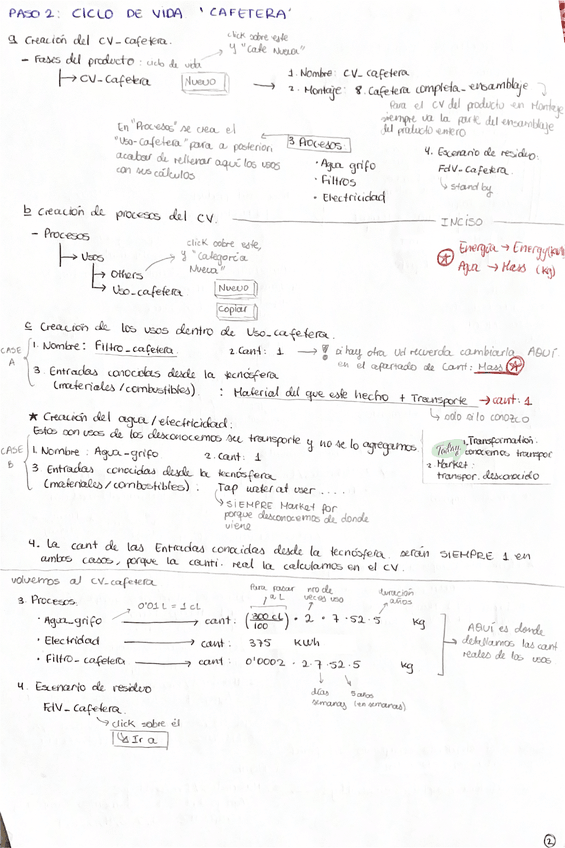 PASO 2: CICLO DE VIDA 'CAFETERA'
a Creación del CV_cafetera.
click sobre este
y "Cafe Nueva"
- Fases del producto: ciclo de vida
CV-Cafetera
Nuevo
1. Nombre: CV_cafetera
2. Montaje: 8. Cafetera completa_ensamblaje
Para el CV del producto en Montaje
siempre va la parte del ensamblaje
del producto entero
En "Procesos" se crea el
"Uso-Cafetera" para a posteriori
acabar de rellenar aquí los usos
con sus cálculos
3 Procesos:
· Agua grifo
· Filtros
· Electricidad
4. Escenario de residuo:
FdV_Cafetera.
stand by
b Creación de procesos del CV.
INCISO
- Procesos
Usos
Others
Uso_cafetera
click sobre este,
y "Categoría
Nueva"
Nuevo
Copiar
Energía → Energy (kWh)
Agua → Mass (kg)
c Creación de los usos dentro de Uso_cafetera.
CASE
A
1. Nombre: Filtro_cafetera.
2 Cant: 1
si hay otra ud recuerda cambiarla AQUÍ
en el apartado de Cant: Mass
3. Entradas conocidas desde la tecnósfera
(materiales/combustibles). : Material del que este hecho + Transporte → cant: 1
solo si lo conozco
★ Creación del agua/electricidad:
Estos son usos de los desconocemos su transporte y no se lo agregamos
CASE
B
1. Nombre: Agua-grifo
2. cant: 1
3 Entradas conocidas desde la tecnósfera
(materiales/combustibles): Tap water at user ....
SIEMPRE Market for
porque desconocemos de donde
viene
1. Transformation:
conocemos transpor
2. Market:
transpor. desconocido
4. La cant de las Entradas conocidas desde la tecnósfera serán SIEMPRE 1 en
ambos casos, porque la canti. real la calculamos en el CV.
volvemos al CV-cafetera
3 Procesos:
0'01 L = 1 cL
Para pasar
a L
nro de
veces uso
duración
años
· Agua_grifo → cant: (300 cL/100) · 2 · 7 · 52 · 5 kg
· Electricidad → cant: 375 kWh
· Filtro-cafetera → cant: 0'0002 · 2 · 7 · 52 · 5 kg
días
semanas
5 años
(en semanas)
AQUÍ es donde
detallamos las cant
reales de los usos
4. Escenario de residuo
FdV_Cafetera.
click sobre él
Ir a
2